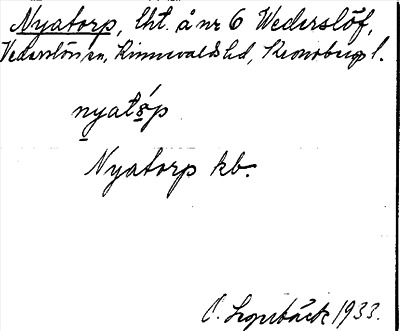 Nyatorp, lht. å nr 6 Wederslöf,
Vederslövs sn, Kinnevalds hd, Kronobergs l.
nyatǫ́p
Nyatorp kb.
1933.